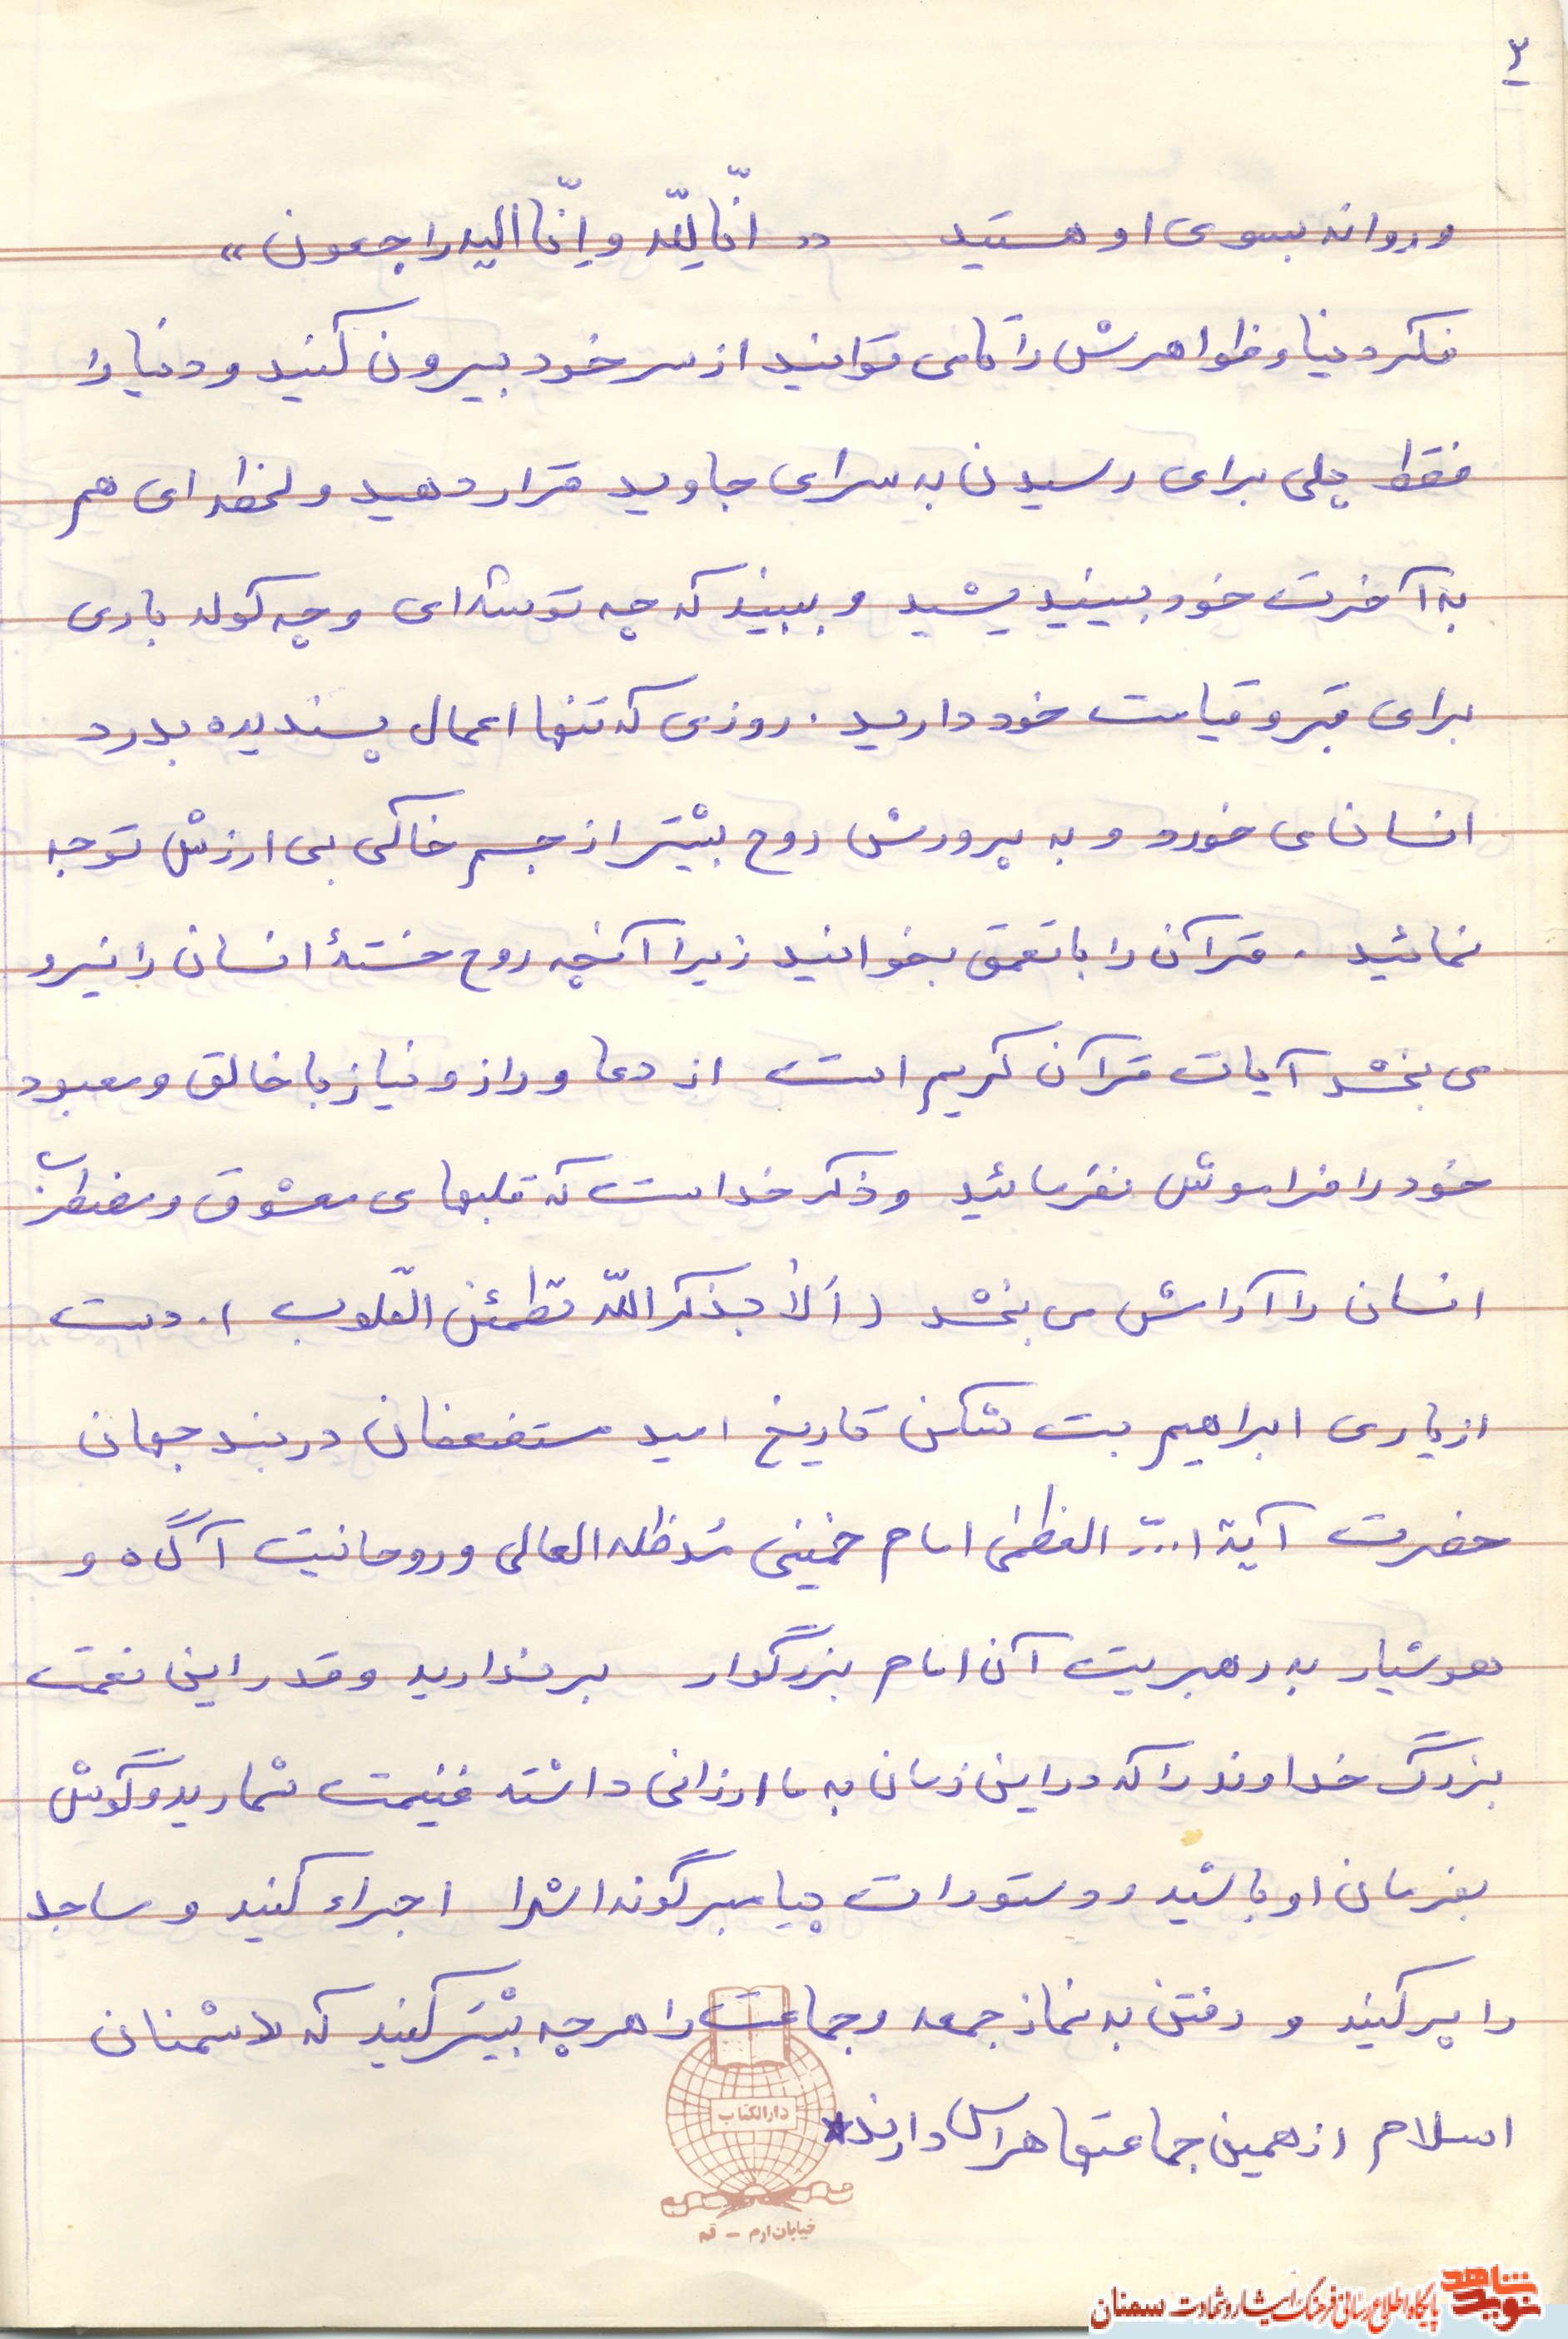 ۳
و روانه بسوی او هستید «انّا للّه و اِنّا الیه راجعون»
فکر دنیا و ظواهرش را تا می توانید از سر خود بیرون کنید و دنیا را
فقط پلی برای رسیدن به سرای جاوید قرار دهید و لحظه ای هم
به آخرت خود بیندیشید و ببیند که چه توشه ای و چه کوله باری
برای قبر و قیامت خود دارید. روزی که تنها اعمال پسندیده بدرد
انسان می خورد و به پرورش روح بیشتر از جسم خاکی بی ارزش توجه
نمائید. قرآن را با تعمق بخوانید زیرا آنچه روح خستهٔ انسان را نیرو
می بخشد آیات قرآن کریم است از دعا و راز و نیاز با خالق و معبود
خود را فراموش نفرمائید و ذکر خداست که قلبهای مشوق و مضطرب
انسان را آرامش می بخشد (اَلاٰ بذکر اللّه تطمئن القلوب). دست
از یاری ابراهیم بت شکن تاریخ امید مستضعفان دربند جهان
حضرت آیة ا... العظمٰی امام خمینی مُدظله العالی و روحانیت آگاه و
هوشیار به رهبریت آن امام بزرگوار برندارید و قدر این نعمت
بزرگ خداوند را که در این زمان به ما ارزانی داشته غنیمت شمارید و گوش
بفرمان او باشید و دستورات پیامبرگونه اش را اجراء کنید و مساجد
را پر کنید و رفتن به نماز جمعه و جماعت را هر چه بیشتر کنید که دشمنان
اسلام از همین جماعتها هراس دارند*
دارالکتاب
خیابان ارم - قم
نوید شاهد
پایگاه اطلاع رسانی فرهنگ ایثار و شهادت سمنان